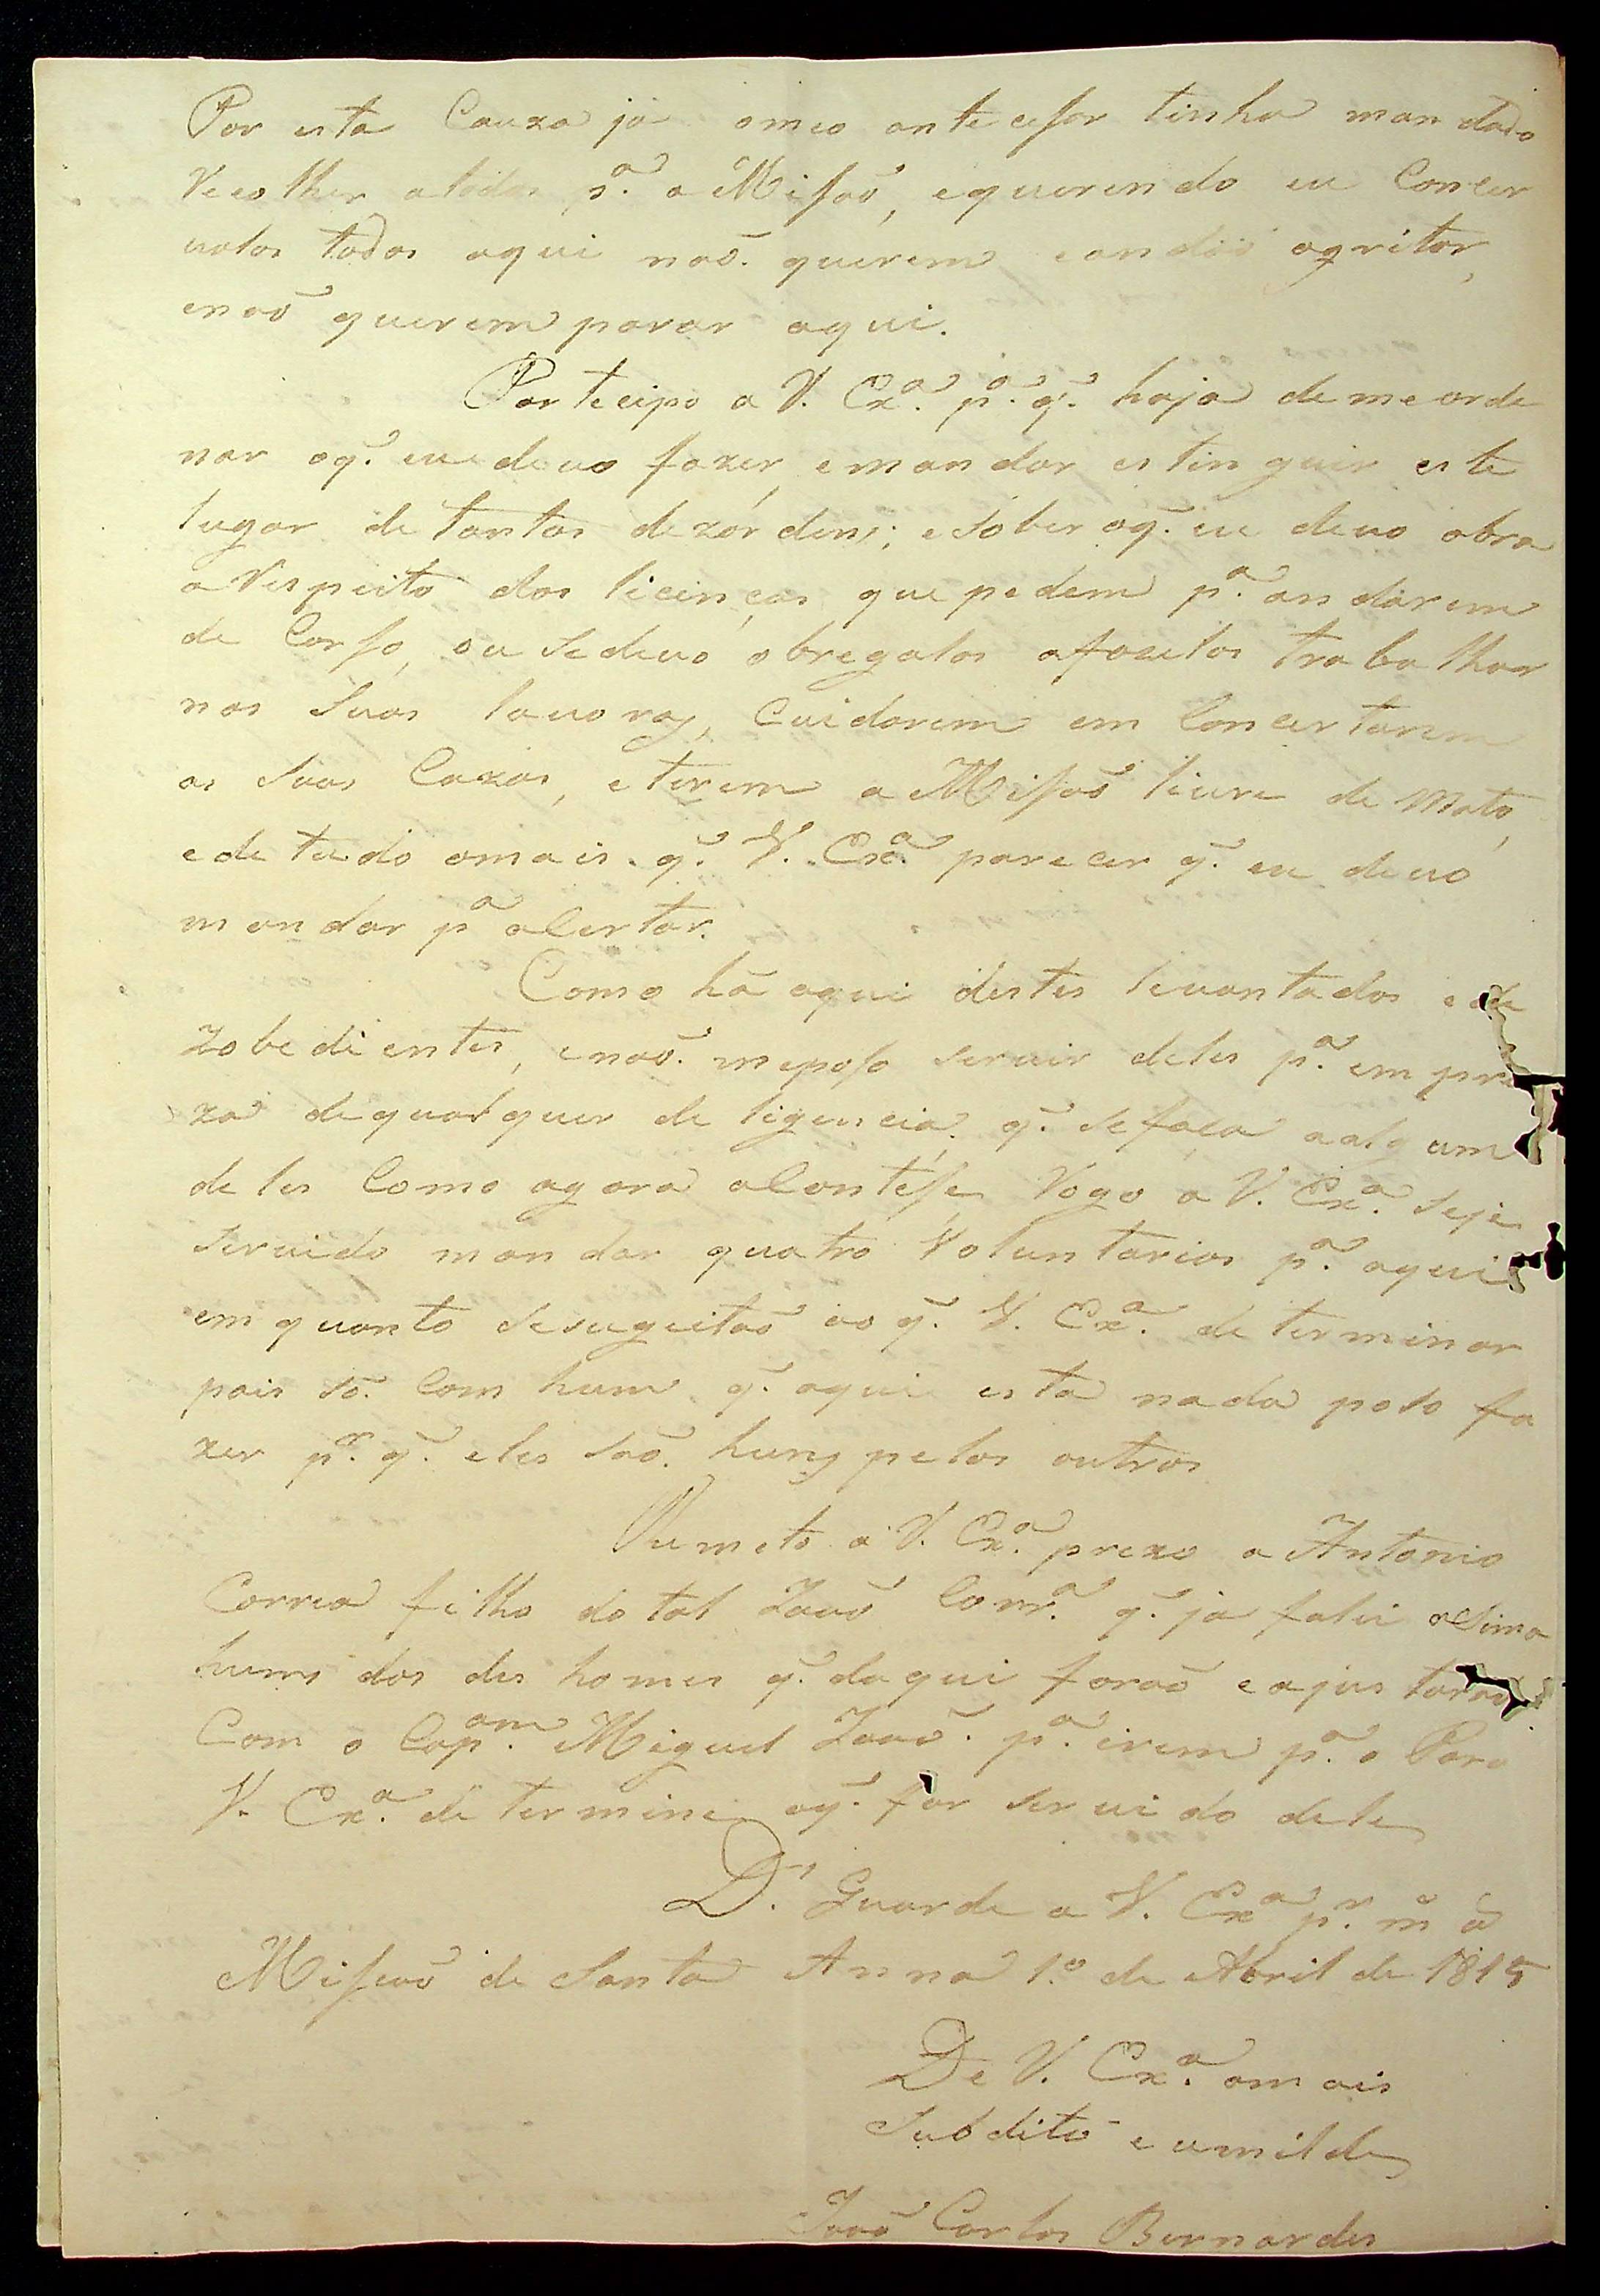 Por esta Cauza já omeo antecessor tinha mandado
Recolher atodos p.ª a Missaõ, equerendo eu Concer
ualos todos aqui naõ. querem eandaõ agritar,
enaõ querem parar aqui.
Partecipo a V. Ex.ª p.ª q̃. haja de me orde
nar oq̃. eu deuo fazer, emandar estinguir este
lugar de tantas dezórdens; esaber oq̃. eu deuo obra
a Respeito das licenças que pedem p.ª andarem
de Corso, ou sedeuo obregalos afazelos trabalhar
nas suas lauoras, Cuidarem em Concertarem
as suas Cazas, eterem a Missaõ liure de Mato,
ede tudo omais. q̃. V. Ex.ª parecer q̃. eu deuo
mandar p.ª aCertar.
Como há aqui destes leuantados ede
zobedientes, enaõ. meposo seruir deles p.ª empre
za dequalquer deligencia. q̃. sefaça aalgum
deles Como agora aContése, Rogo a V. Ex.ª seje
seruido mandar quatro Voluntarios p.ª aqui
emquanto sesugeitaõ ao q̃. V. Ex.ª determinar
pois só. Com hum, q̃. aqui esta nada poso fa
zer p.r q̃. eles saõ. huns pelos outros
Remeto a V. Ex.ª prezo a Antonio
Correa filho do tal Joaõ Corr.ª q̃. ja falei aSima
hum dos des homes q̃. daqui foraõ eajustaraõ
Com o Cap.am Miguel Joaõ. p.ª irem p.ª o Para
V. Ex.ª determine oq̃. for seruido dele
D.s Guarde a V. Ex.ª p.r m̃ ã
Missaõ de Santa Anna 1.º de Abril de 1815
De V. Ex.ª omais
Subdito eumilde
Joaõ Carlos Bernardes